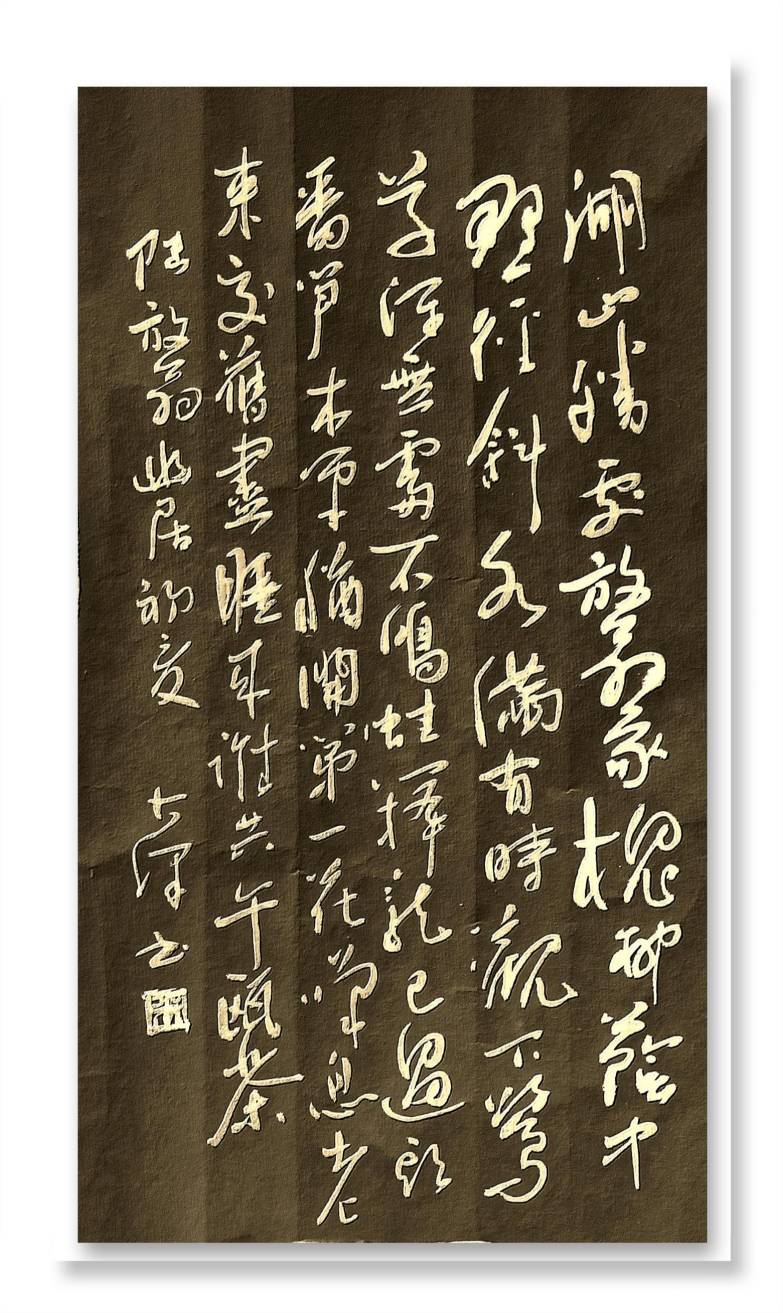 湖山勝處放翁家槐柳蔭中
野徑斜水滿有時觀下鷺
草深無處不鳴蛙籜龍已過頭
番筍木筆猶開第一花嘆息老
來交舊盡睡來誰共午甌茶
陸放翁幽居初夏 書